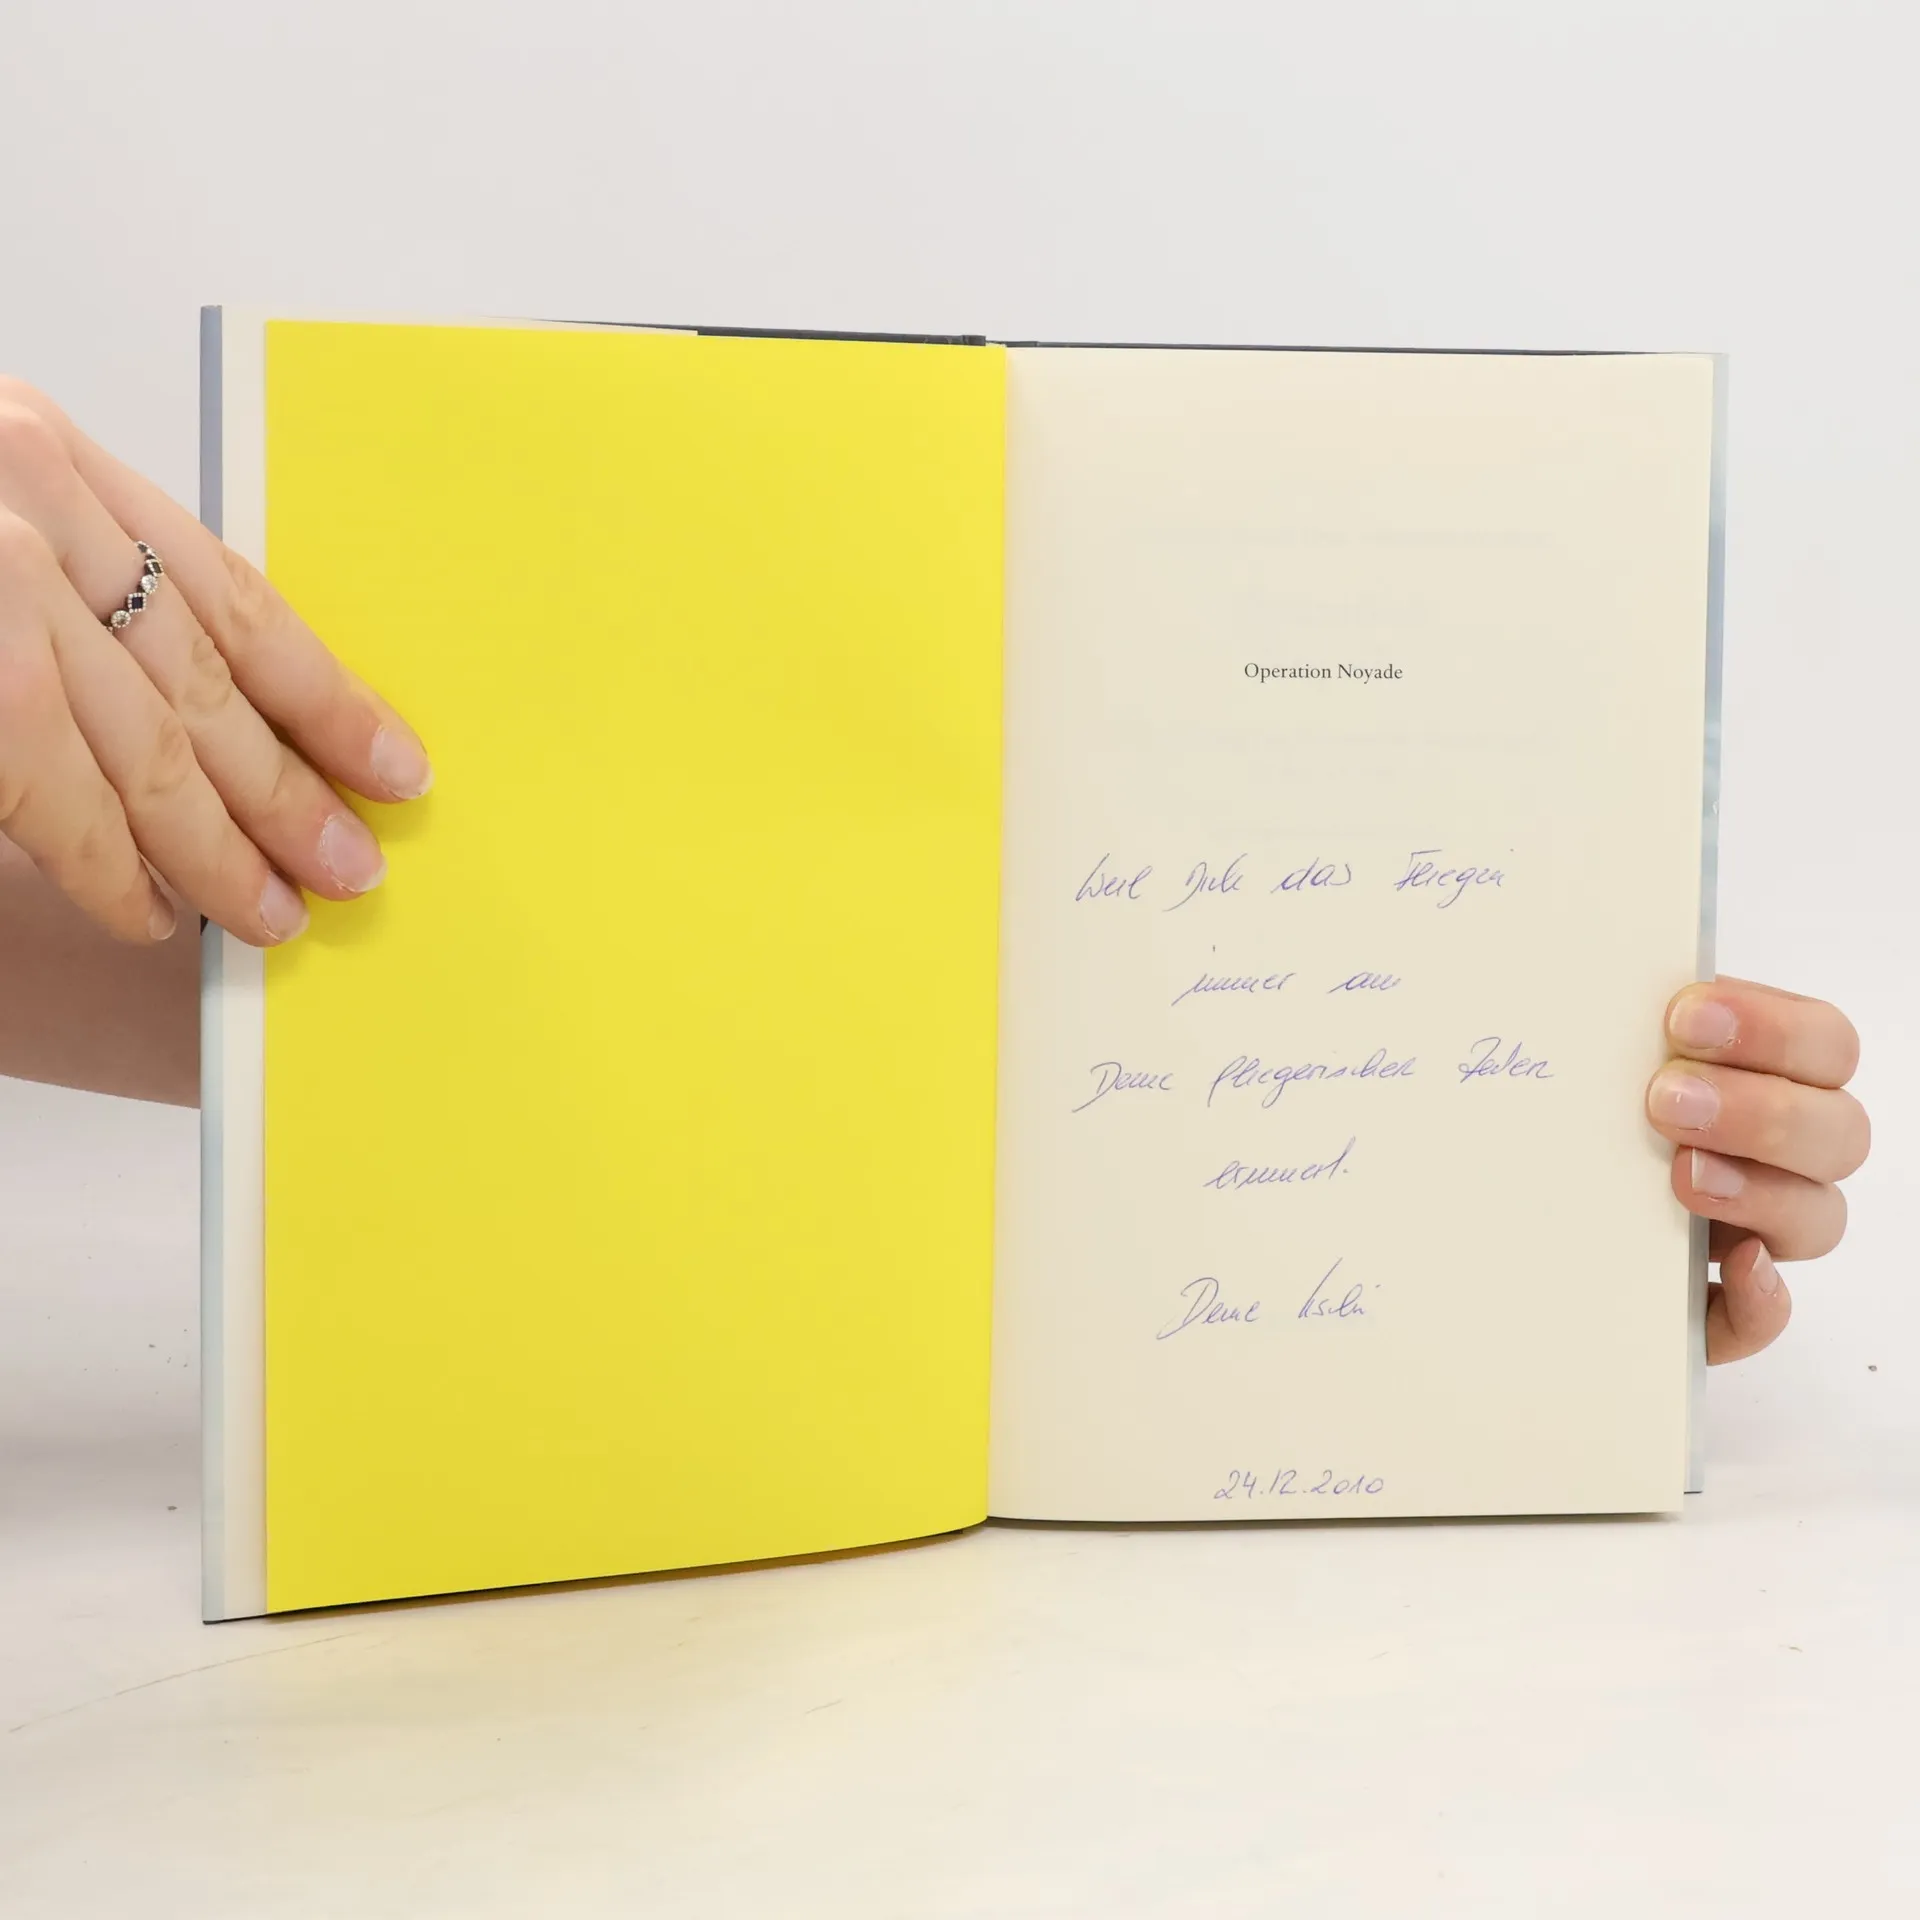 Operation Noyade
Weil Dich das Fliegen
immer an
Deine fliegerischen
erinnert.
Deine
24.12.2010